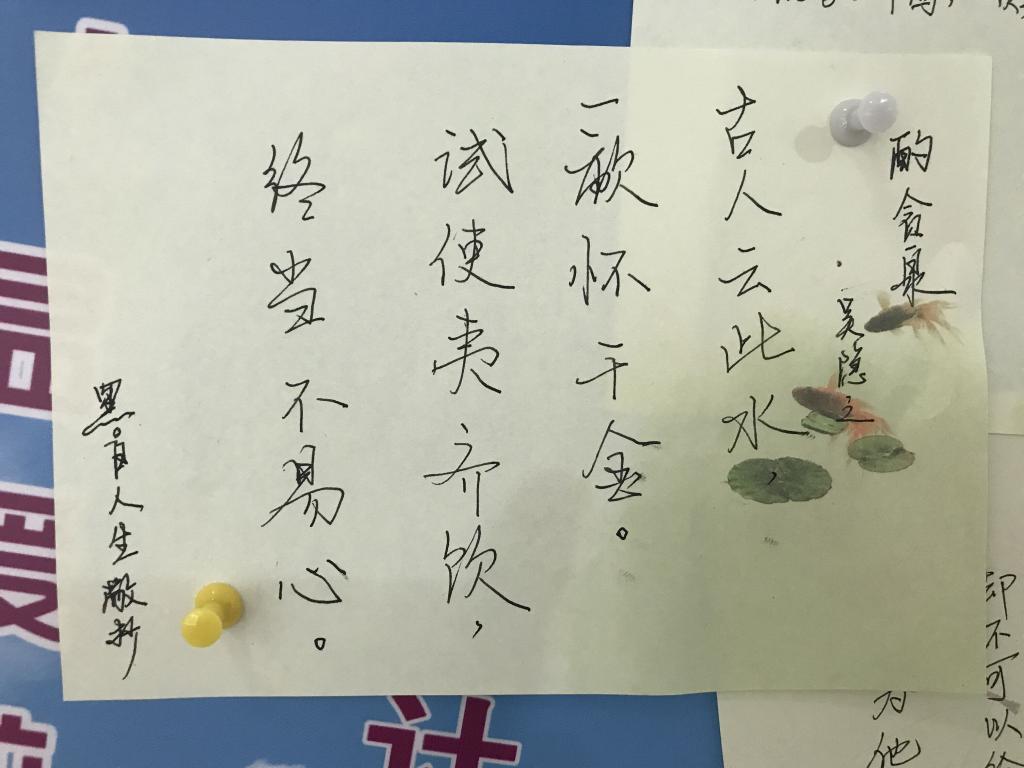 酌贪泉
吴隐之
古人云此水，
一歃怀千金。
试使夷齐饮，
终当不易心。
黑白人生敬抄
却不可以
为他
计